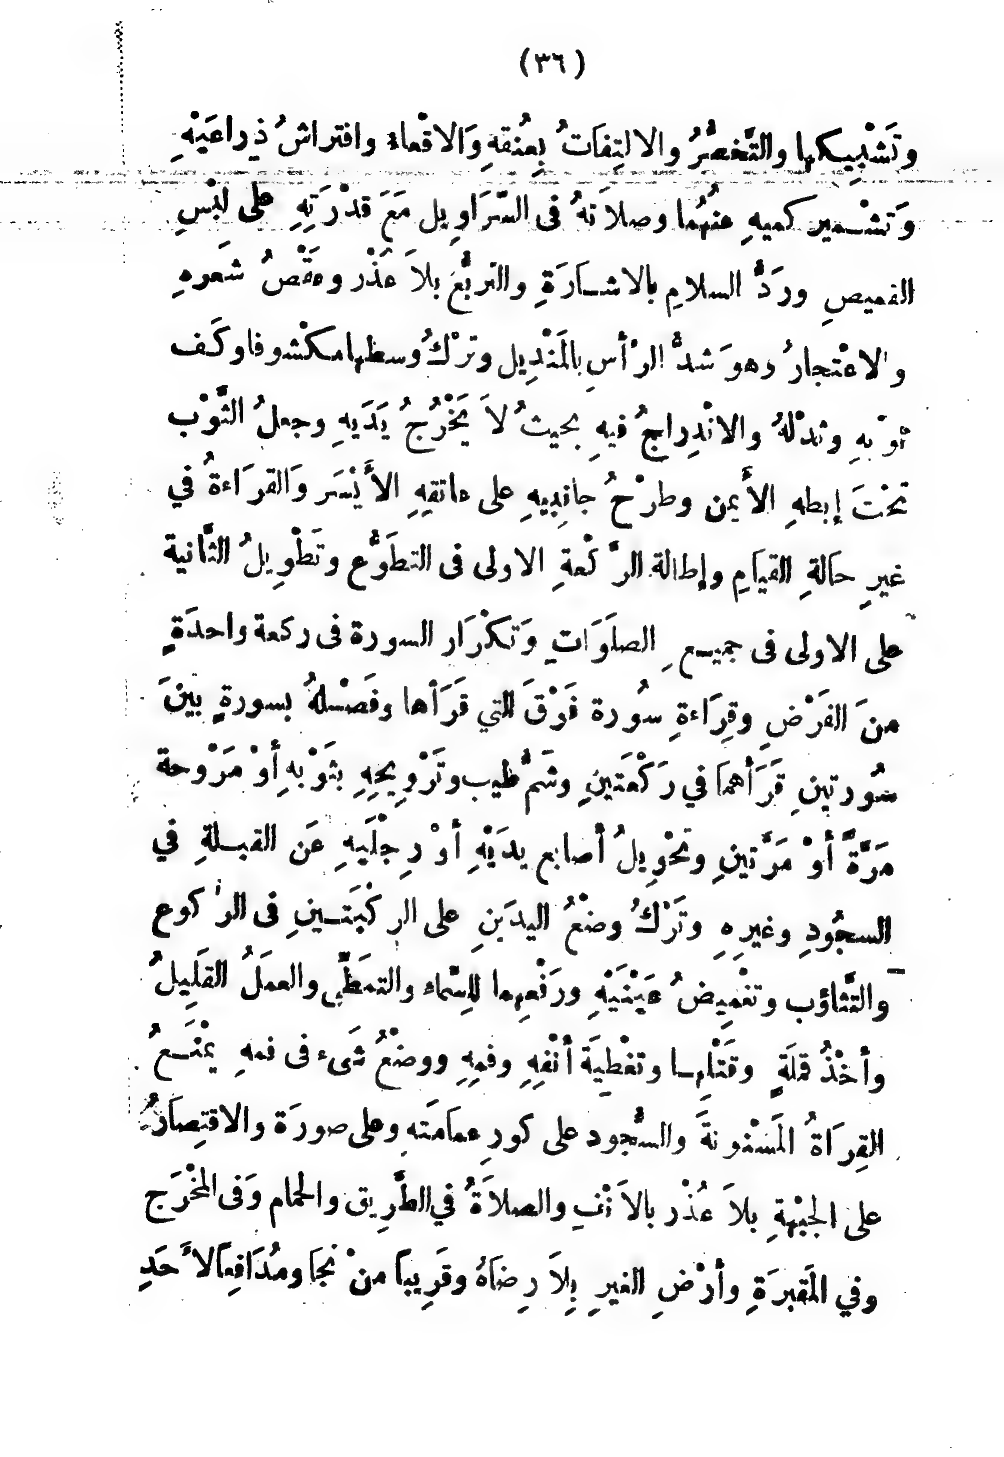 (٣٦)
وَتَشْبِيكِها والتَّخصُّرُ والالتِفَاتُ بِعُنقهِ وَالاقْعاءُ وافتراشُ ذِراعَيْهِ
وَتشْميرِ كميهِ عنهُما وصلاتهُ فى السَّرَاوِيل مَعَ قدْرَتهِ على لبْسِ
القميصِ ورَدُّ السلامِ بالاشَارَةِ والتربُّعُ بلاَ عُذْر وعَقْصُ شَعرهِ
والاعْتجارُ وهوَ شدُّ الرأسِ بالمَنْدِيل وترْكُ وسطها مكْشوفا وكَف
ثوْبهِ وسَدْلهُ والانْدِراجُ فيهِ بحيثُ لاَ يَخْرُجُ يَدَيهِ وجعلُ الثَّوْب
تحْتَ إبطهِ الأيمن وطرْحُ جانِبيهِ على عاتقِهِ الأيْسَر وَالقرَاءةُ في
غيرِ حَالةِ القيَامِ وإطالة الرَّكْعةِ الاولى فى التطَوُّع وتَطْوِيلُ الثَّانية
على الاولى فى جميعِ الصلَوَاتِ وَتكْرَار السورة فى ركعة واحدَةٍ
منَ الفَرْضِ وقِرَاءةِ سُورة فَوْقَ التي قَرَأها وفَصْلهُ بسورةٍ بيْنَ
سُورتينِ قَرَأهمَا في رَكْعَتينِ وشَمُّ طيب وتَرْوِيحِهِ بثَوْبهِ أوْ مَرْوحة
مَرَّةً أوْ مَرَّتينِ وتحْوِيلُ أصابع يدَيْهِ أوْ رِجْلَيهِ عَن القبلةِ في
السجُودِ وغيرِهِ وتَرْكُ وضْعُ اليدَينِ على الركْبَتينِ فى الركوع
والتَّثاؤب وتغْمِيضُ عيْنَيْهِ ورَفْعهِما للسَّماء والتمَطِّي والعملُ القلَِيلُ
وأخذُ قملَةٍ وقتْلِها وتغْطِيَة أنْفِهِ وفمِهِ ووضْعُ شَىء فى فمهِ يمْنَعُ
القِرَاةُ المَسْنونةَ والسُّجود على كورِ عمَامَته وعلى صورَة والاقتِصَارُ
على الجبْهةِ بلاَ عُذْر بالأنْفِ والصلاَةُ في الطَّرِيق والحمام وَفى المخْرَج
وفي المَقبرَةِ وأرْضِ الغيرِ بِلاَ رِضاهُ وقَرِيباً منْ نجَا ومُدَافِعاً لأَحَدِ